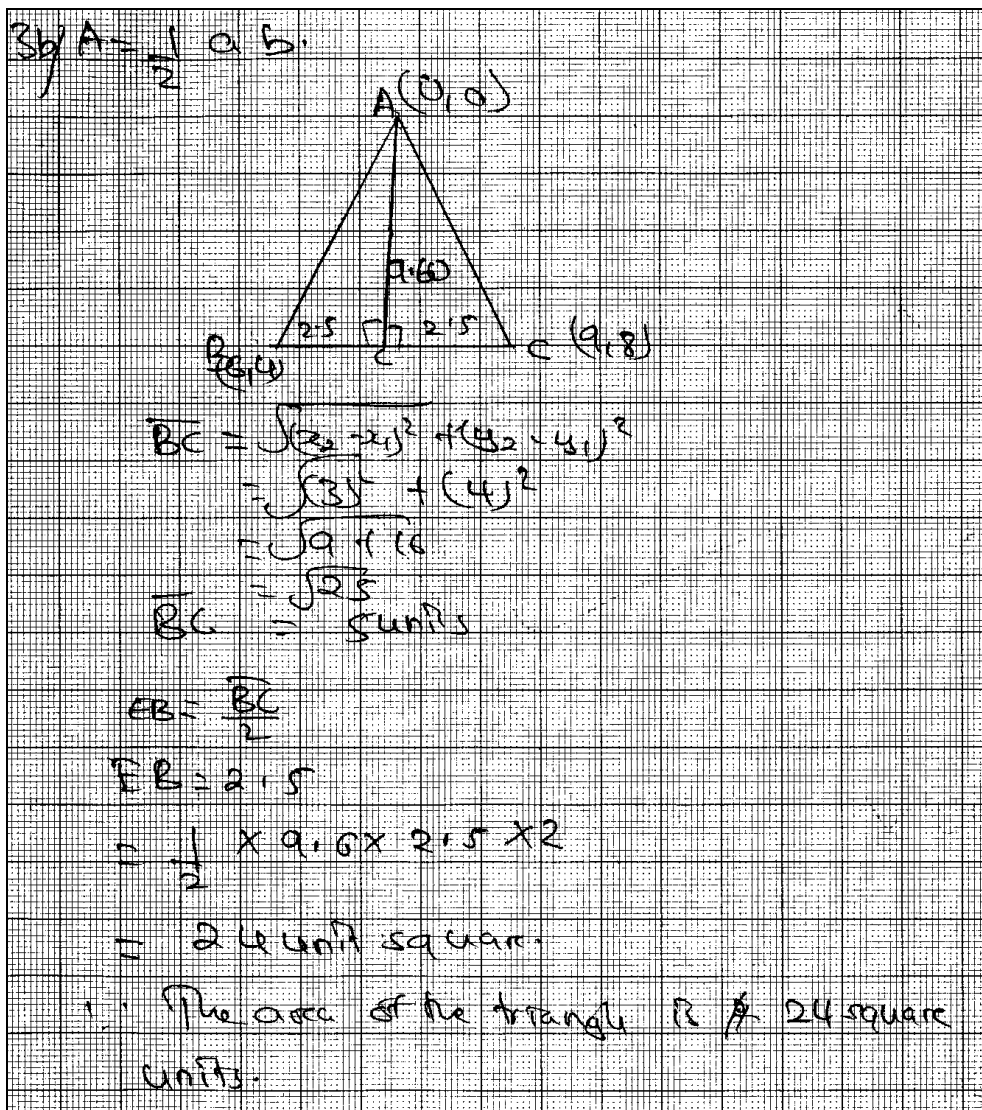 3b/ A = 1/2 a b.
A(0,0)
9.60
2.5 2.5
B(6,4) C C (9,8)
BC = √(x₂ - x₁)² + (y₂ - y₁)²
= √(3)² + (4)²
= √9 + 16
= √25
BC = 5units
EB = BC/2
EB = 2.5
= 1/2 × 9.6 × 2.5 × 2
= 24 unit square.
∴ The area of the triangle is 24 square
units.